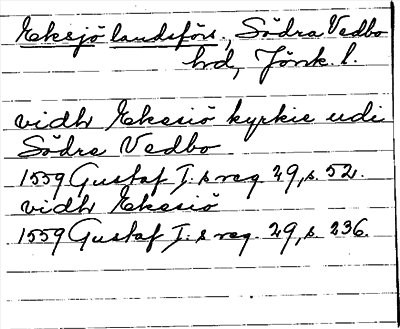 Eksjö landsförs., Södra Vedbo
hd, Jönk. l.
vidh Ekesiö kyrkie udi
Södre Vedbo
1559 Gustaf I:s reg. 29, s. 52.
vidh Ekesiö
1559 Gustaf I:s reg. 29, s. 236.